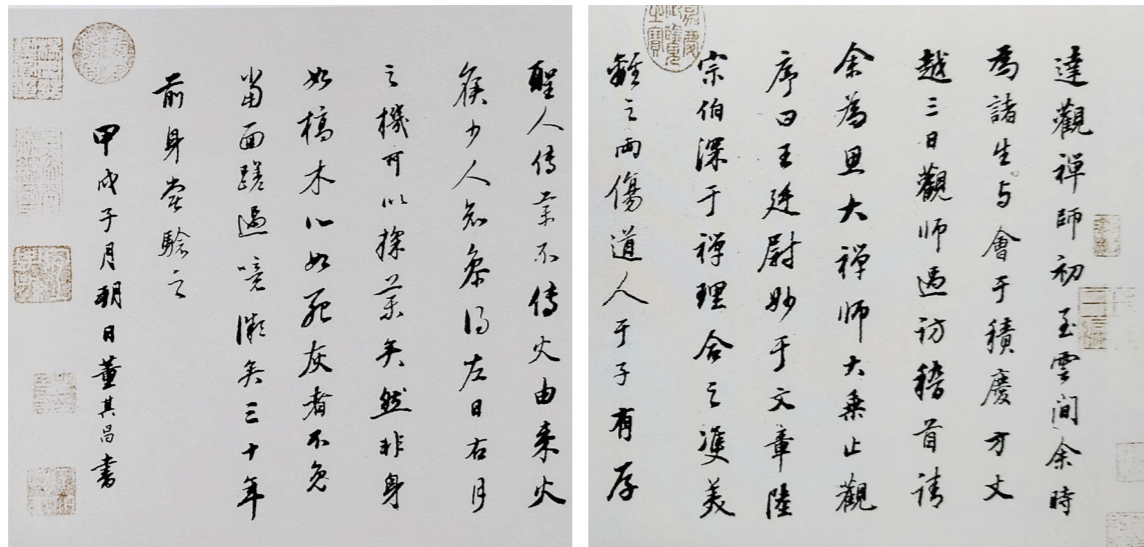 嘉慶御覽之寶
達觀禪師初至雲間余時
為諸生与會于積慶方丈
越三日觀師過訪稽首請
余為思大禪師大乘止觀
序曰王廷尉妙于文章陸
宗伯深于禪理合之雙美
離之兩傷道人于子有厚
聖人傳薬不傳火由来火
候少人知參得左日右月
之機可以採薬矣然非身
如槁木心如死灰者不免
當面蹉過境矣三十年
前身嘗驗之
甲戌子月朔日董其昌書